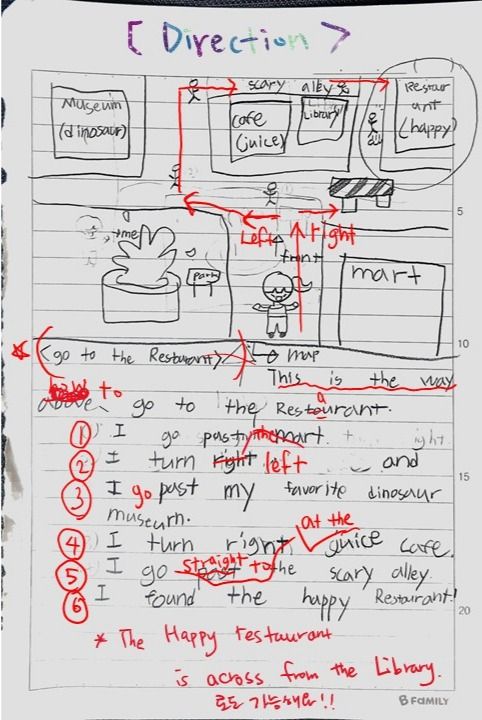 [ Direction >
scary alley
Museum
(dinosaur)
cafe
(juice)
Library
Restaur
ant
(happy)
5
me
Left
right
park
front
mart
10
* (go to the Restaurant) map
This is the way
how to
above, go to the Restaurant.
a
① I go past the mart.
② I turn right left and
15
③ I go past my favorite dinosaur
museum.
at the
④ I turn right, juice cafe.
straight
⑤ I go past to the scary alley.
⑥ I found the happy Restaurant!
20
* The Happy restaurant
is across from the Library.
로도 가능해요!!
B FAMILY